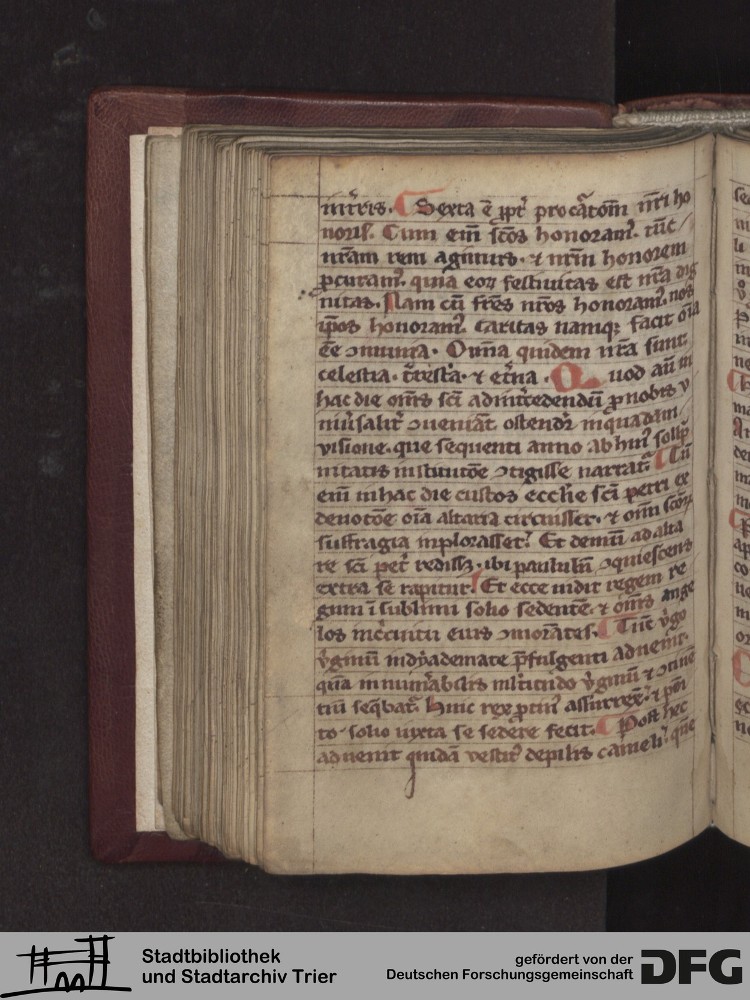 nr̄is. Sexta ē ꝓpt̕ procat̄om̄ nr̄i ho
noris. Cum em̄ sc̄os honoram᷒. tūc
nr̄am rem agimus. ⁊ nr̄m honorem
ꝓcuram᷒. quia eoꝝ festiuitas est nr̄a dig
nitas. Nam cū fr̄es nr̄os honoram᷒. nos
ip̄os honoram᷒. Caritas namqꝫ facit oīa
ēe ꝯmunia. Om̄ia quidem nr̄a sunt
celestia. t̄restia. ⁊ et̄na. Quod aūt in
hac die om̄s sc̄i ad int̄cedendū ꝓ nobis v
niu̓salit̕ ꝯueniāt ostendit̕ in quadam
visione. que sequenti anno ab hui᷒ sollēp
nitatis institutōe ꝯtigisse narrat̕. Cū
em̄ in hac die custos eccl̄ie sc̄i petri ex
deuotōe oīa altaria circuisset. ⁊ om̄i sc̄oꝝ
suffragia inplorasset. Et demū ad alta
re sc̄i pet̕ redissꝫ. ibi paululū ꝯquiescens
extra se rapitur. Et ecce uidit regem re
gum ī sublimi solio sedentē. ⁊ om̄s ange
los in circuitu eius ꝯmorātes. Tūc v̓go
v̓ginū in dyademate p̄fulgenti aduenit.
quā innum̄abilis ml̄titudo v̓ginū ⁊ ꝯtinē
tiū seq̄bat̕. Huic rex ꝓtin᷒ assurrexꝫ. ⁊ posi
to solio iuxta se sedere fecit. Post hec
aduenit quidā vestit᷒ de pilis cameli. quē
Stadtbibliothek
und Stadtarchiv Trier
gefördert von der
Deutschen Forschungsgemeinschaft
DFG